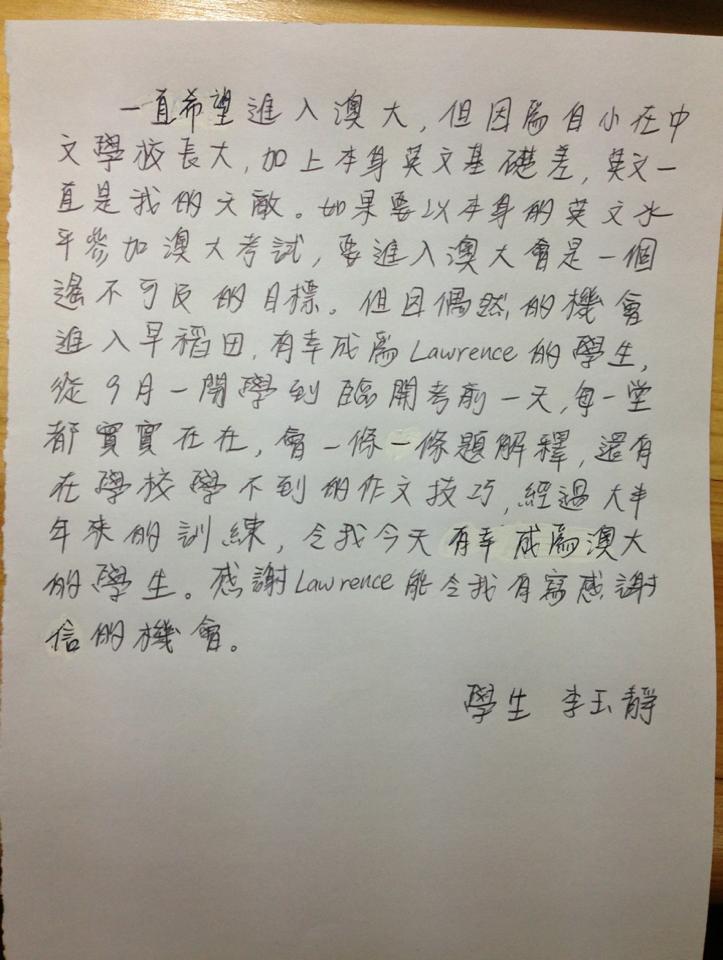 一直希望進入澳大，但因為自小在中
文學校長大，加上本身英文基礎差，英文一
直是我的天敵。如果要以本身的英文水
平參加澳大考試，要進入澳大會是一個
遙不可及的目標。但因偶然的機會
進入早稻田，有幸成為Lawrence的學生，
從9月一開學到臨開考前一天，每一堂
都實實在在，會一條一條題解釋，還有
在學校學不到的作文技巧，經過大半
年來的訓練，令我今天有幸成為澳大
的學生。感謝Lawrence能令我有寫感謝
信的機會。
學生 李玉靜